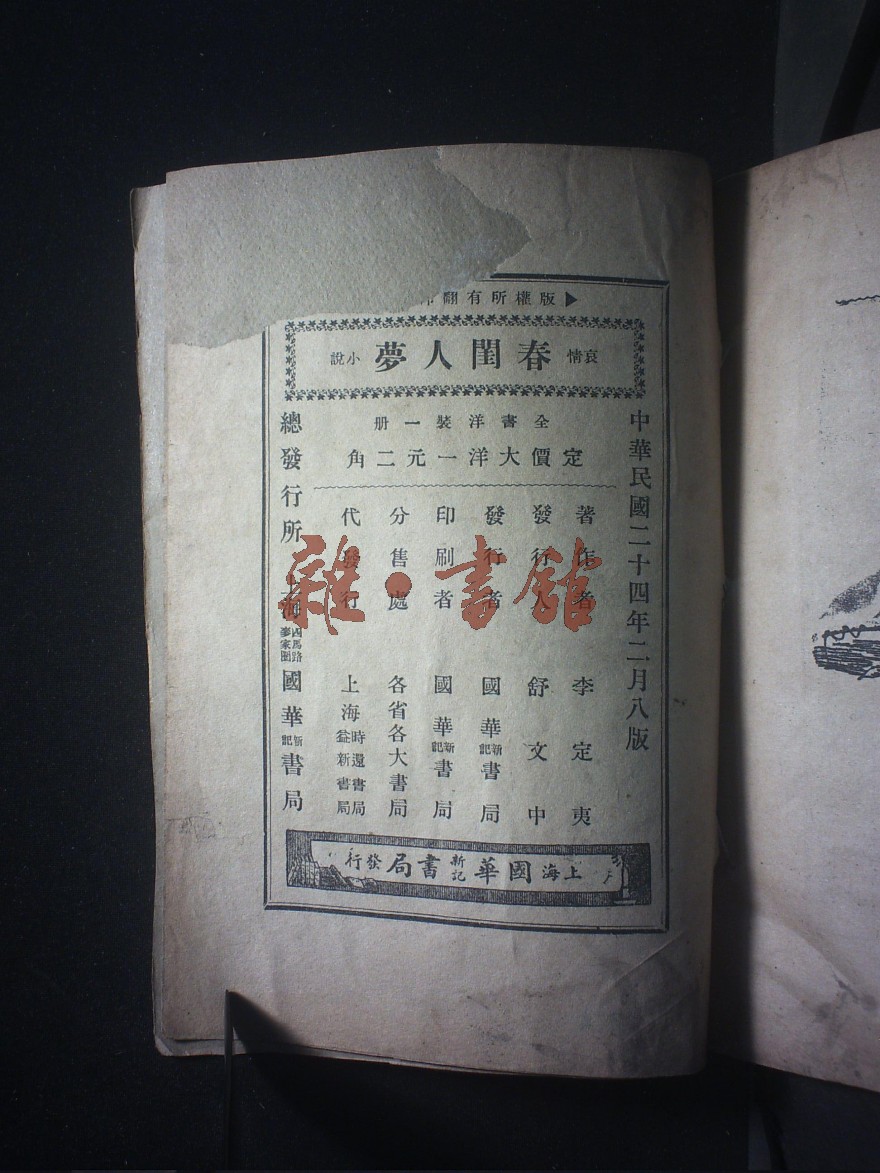 版權所有翻印
哀情 春閨人夢 小說
中華民國二十四年二月八版
全書洋裝一册
定價大洋一元二角
著作者 李定夷
發行人 舒文中
發行者 國華新記書局
印刷者 國華新記書局
分售處 各省各大書局
代發行 上海時還書局 益新書局
總發行所 上海四馬路麥家圈 國華新記書局
上海國華新記書局發行
雜·書館